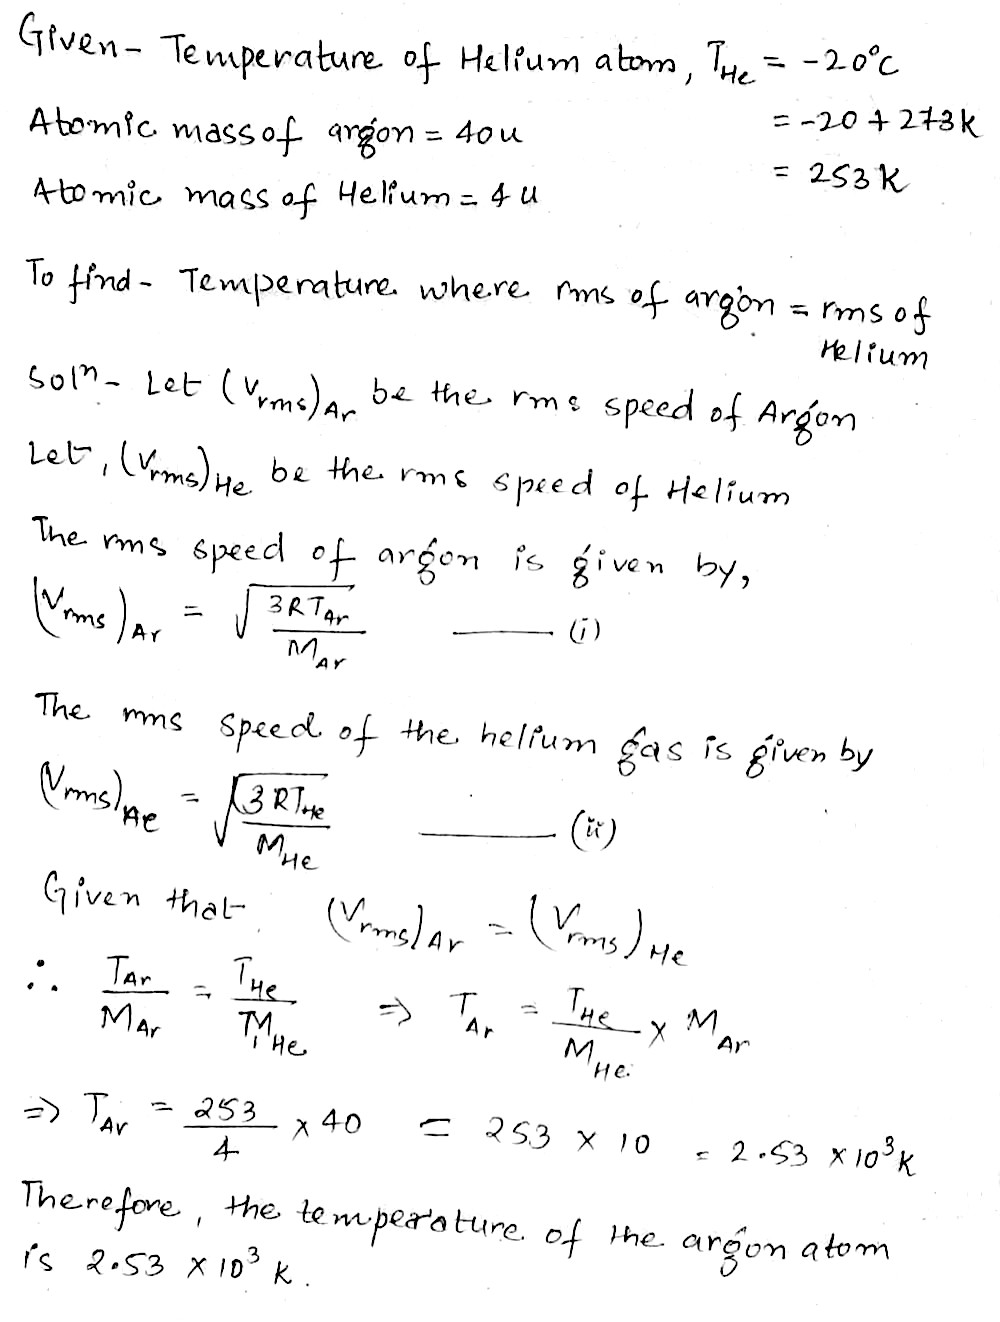 Given- Temperature of Helium atom, T_He = -20°C
= -20 + 273K
Atomic mass of argon = 40u
= 253K
Atomic mass of Helium = 4u
To find- Temperature where rms of argon = rms of Helium
Solⁿ- Let (V_rms)_Ar be the rms speed of Argon
Let, (V_rms)_He be the rms speed of Helium
The rms speed of argon is given by,
(V_rms)_Ar = √(3RT_Ar / M_Ar) —— (i)
The rms speed of the helium gas is given by
(V_rms)_He = √(3RT_He / M_He) —— (ii)
Given that (V_rms)_Ar = (V_rms)_He
∴ T_Ar / M_Ar = T_He / M_He ⇒ T_Ar = T_He / M_He × M_Ar
⇒ T_Ar = 253 / 4 × 40 = 253 × 10 = 2.53 × 10³K
Therefore, the temperature of the argon atom
is 2.53 × 10³ K.